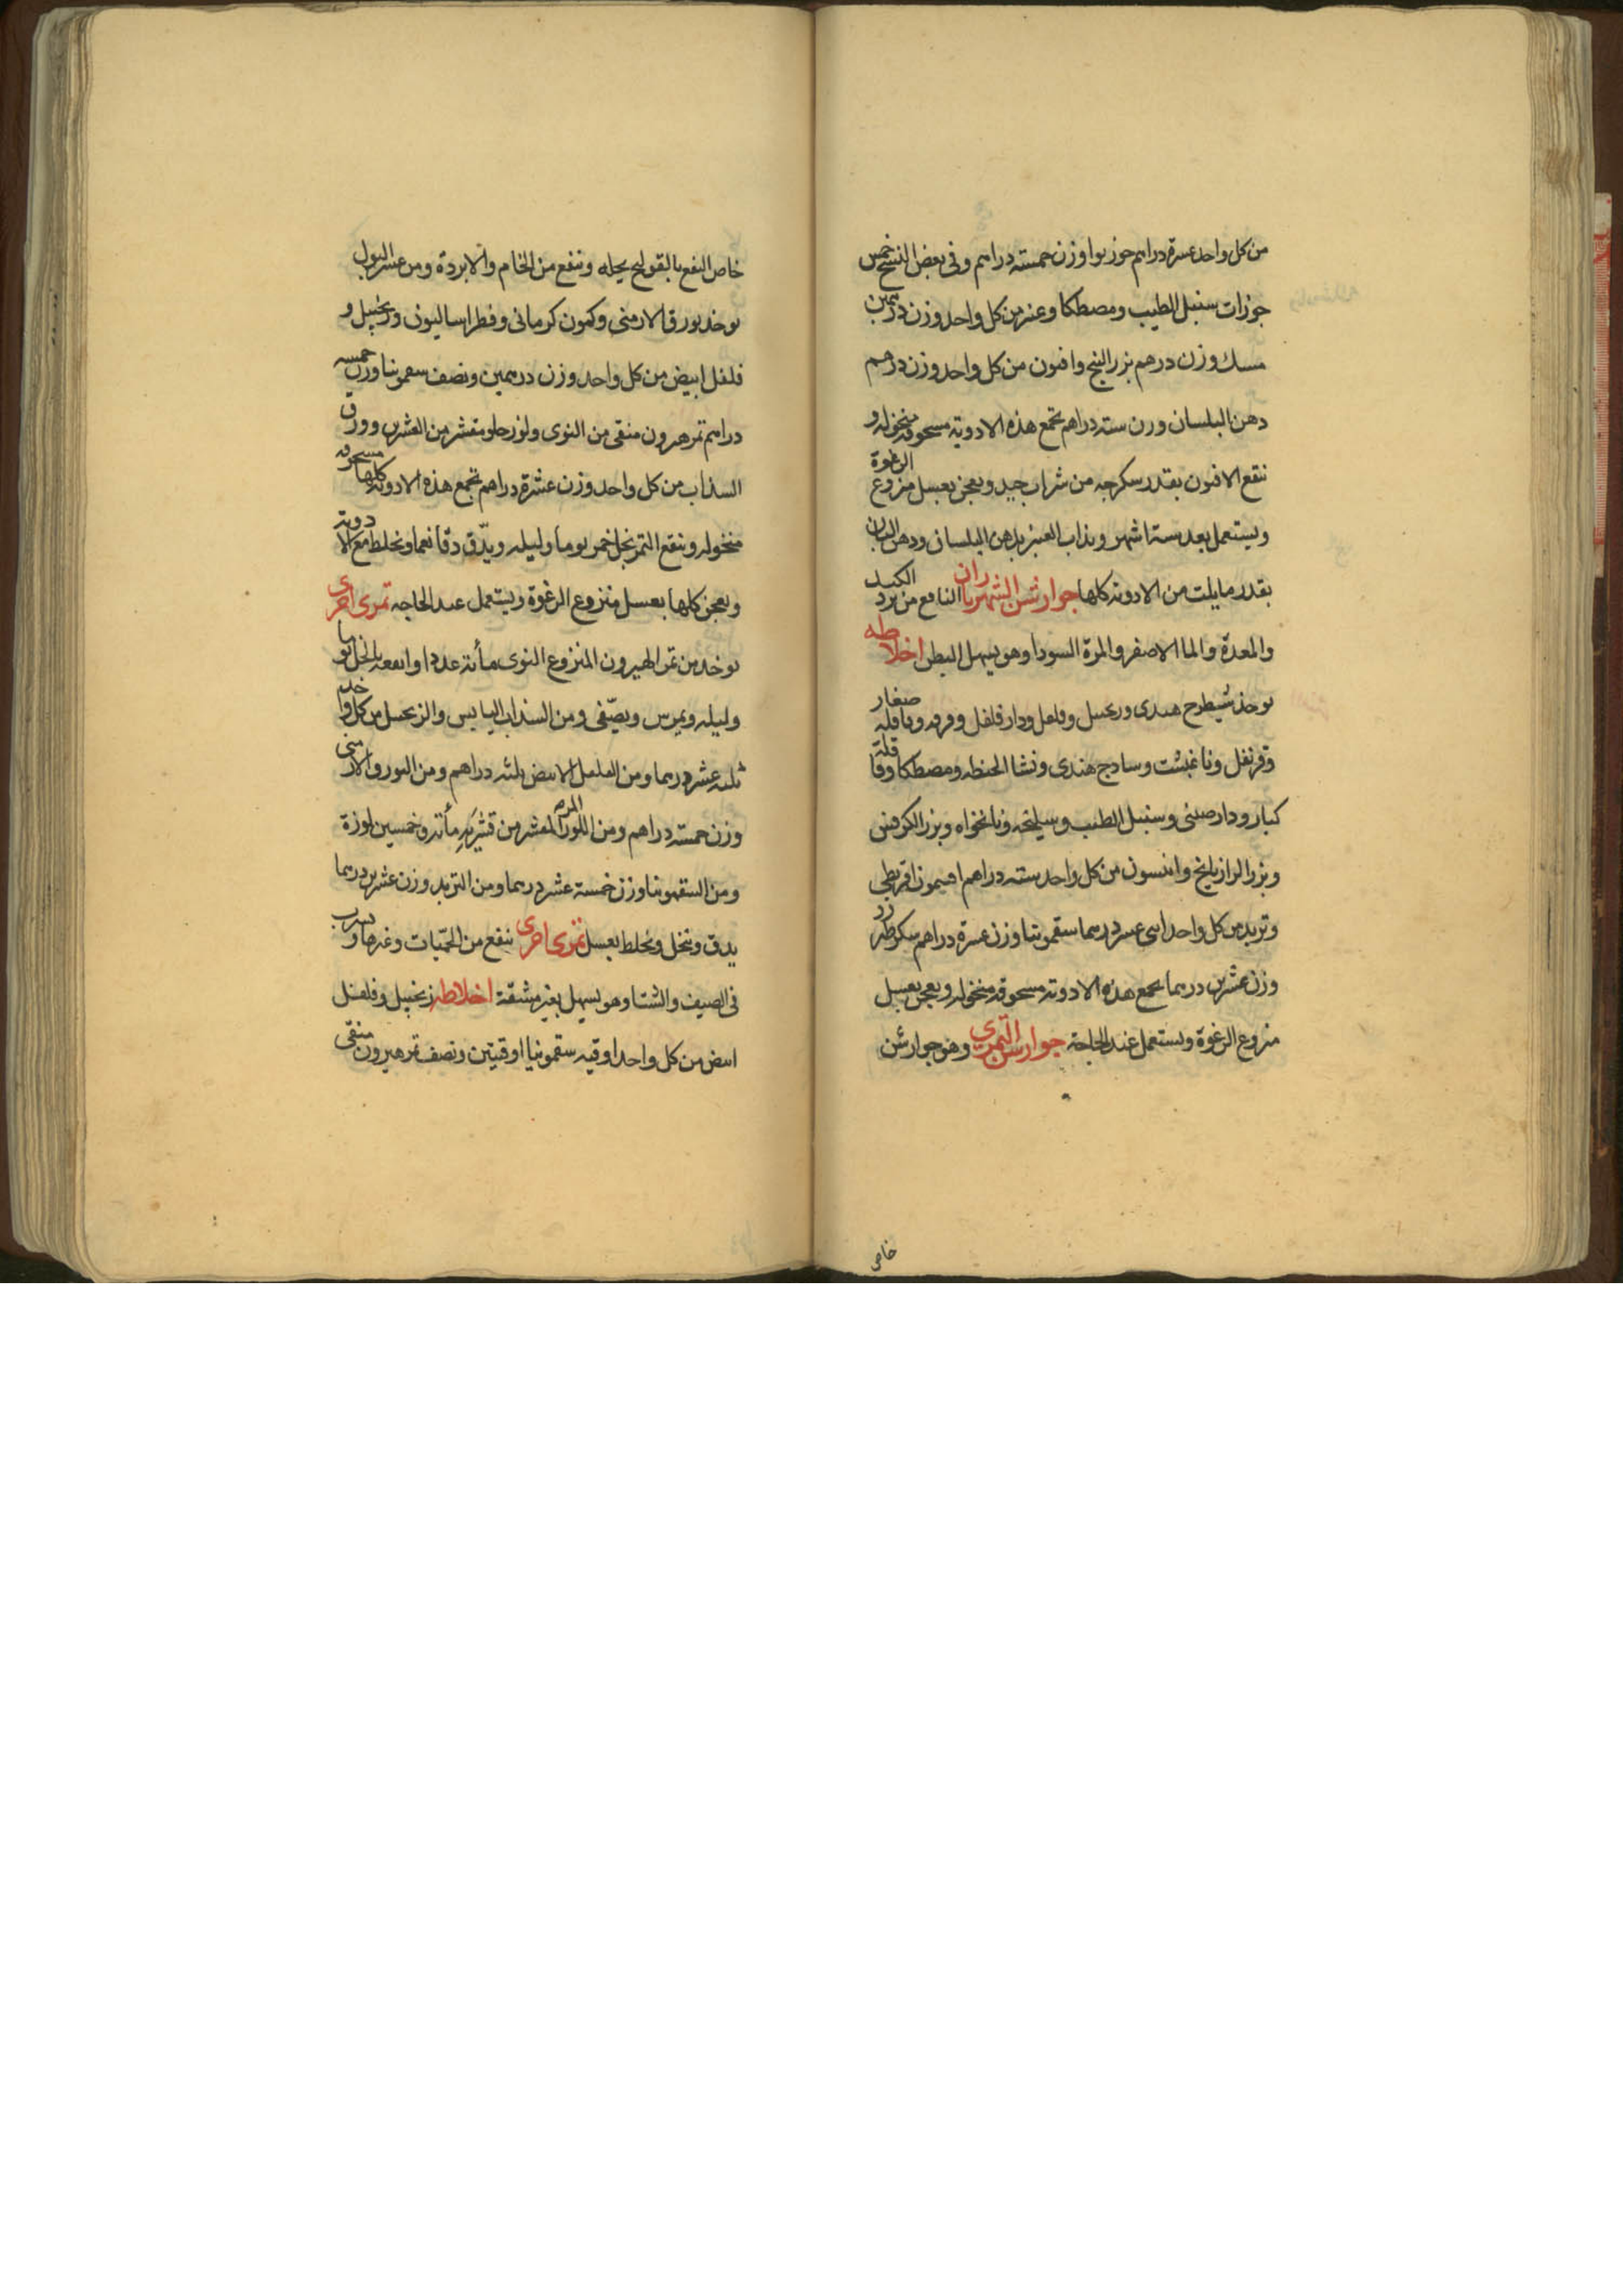 من كل واحد عشرة دراهم جوز بوا وزن خمسة دراهم وفى بعض النسخ خمس
جوزات سنبل الطيب ومصطكا وعنبر من كل واحد وزن درهمين
مسك وزن درهم بزر البنج وافيون من كل واحد وزن درهم
دهن البلسان وزن ستة دراهم تجمع هذه الادوية مسحوقه منخوله و
ننقع الافيون بقدر سكرجه من شراب جيد ويعجن بعسل منزوع الرغوة
ويستعمل بعد ستة اشهر ويذاب العنبر بدهن البلسان ودهن البان
بقدر ما يلت من الادويه كلها جوارشن الشهرياران النافع من برد الكبد
والمعدة والما الاصفر والمرة السودا وهو يسهل البطن اخلاطه
يوخذ شيطرج هندى وزنجبيل وفلفل ودار فلفل وقرفه وقاقله صغار
وقرنفل ونا غبشت وسادج هندى ونشا الحنطه ومصطكا وقاقلة
كبار ودارصينى وسنبل الطيب وسيلخه ونانخواه وبزر الكرفس
وبزر الرازيانج وانيسون من كل واحد ستة دراهم افيمون اقريطى
وتربد من كل واحد اثنى عشر درهما سقمونيا وزن عشرة دراهم سكر طبرزد
وزن عشرين درهما تجمع هذه الادوية مسحوقه منخوله ويعجن بعسل
منزوع الرغوة ويستعمل عند الحاجة جوارشن التمرى وهو جوارشن
خاص
خاص النفع بالقولنج يحله وينفع من الخام والابردة ومن عسر البول
يوخذ بورق الارمنى وكمون كرمانى وفطراساليون وزنجبيل و
فلفل ابيض من كل واحد وزن درهمين ونصف سقمونيا وزن خمسه
دراهم تمر هيرون منقى من النوى ولوز حلو مقشر من القشرين وورق
السذاب من كل واحد وزن عشرة دراهم تجمع هذه الادويه كلها مسحوقه
منخوله وينقع التمر بخل خمر يوما وليله ويدّق دقا نعما ويخلط مع الادوية
ويعجن كلها بعسل منزوع الرغوة ويستعمل عند الحاجه تمرى اخرى
يوخذ من تمر الهيرون المنزوع النوى مأته عددا وانقعه بالخل يوما
وليله ويمرس ويصّفى ومن السذاب اليابس والزنجبيل من كل واحد
ثلثه عشر درهما ومن الفلفل الابيض ثلثه دراهم ومن البورق الارمنى
وزن خمسة دراهم ومن اللوز المر المقشر من قشريه مأته وخمسين لوزة
ومن السقمونيا وزن خمسة عشر درهما ومن التربد وزن عشرين درهما
يدق وينخل ويخلط بعسل تمرى اخرى ينفع من الحمّيات وغيرها ويشرب
فى الصيف والشتا وهو يسهل بغير مشقة اخلاطه زنجبيل وفلفل
ابيض من كل واحد اوقيه سقمونيا اوقيتين ونصف تمر هيرون منقى